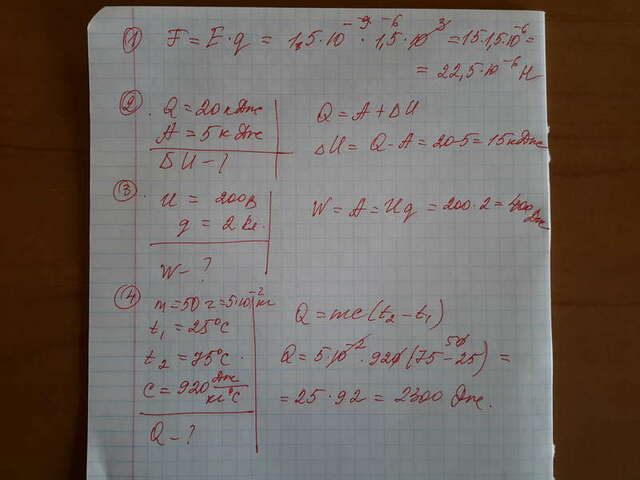 ① F = E · q = 1,5·10⁻⁹ ⁻⁶ · 1,5·10³ = 15·1,5·10⁻⁶ =
= 22,5·10⁻⁶ Н
② Q = 20 кДж
A = 5 кДж
ΔU - ?
Q = A + ΔU
ΔU = Q - A = 20-5 = 15 кДж
③ U = 200В
q = 2 Кл.
W - ?
W = A = Uq = 200·2 = 400 Дж
④ m = 50 г = 5·10⁻² кг
t₁ = 25°C
t₂ = 75°C.
c = 920 Дж/кг°C
Q - ?
Q = mc(t₂ - t₁)
Q = 5·10⁻² · 920 (75-25) 50 =
= 25 · 92 = 2300 Дж.